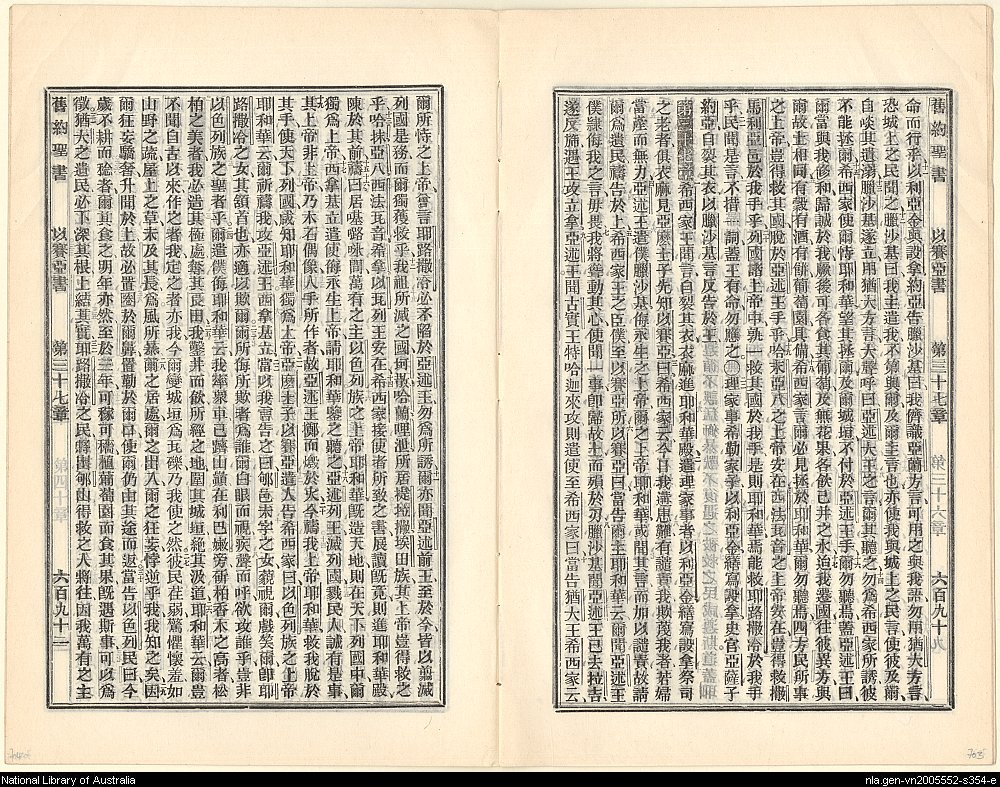 舊約聖書 以賽亞書 第三十七章 第三十六章
命而行乎以利亞金與設拿約亞告臘沙基曰我儕識亞蘭方言可用之與我語勿用猶大方言
恐城上之民聞之臘沙基曰我主遣我不第與爾及爾主言也亦使我與城上之民言使彼及爾
自啖其遺溺臘沙基遂立用猶大方言大聲呼曰亞述大王之言爾其聽之勿爲希西家所誘彼
不能拯爾希西家使爾恃耶和華望其拯爾及爾城垣不付於亞述王手爾勿聽焉蓋亞述王曰
爾當與我修和歸誠於我厥後可各食其葡萄及無花果各飲己井之水迨我遷國往彼異方與
爾故土相同有穀有酒有餅葡萄園具備希西家言爾必見拯於耶和華爾勿聽焉四方民所事
之上帝豈得救其國脫於亞述王手乎哈末亞八之上帝安在西法瓦音之上帝安在豈得救撒
馬利亞邑於我手乎列國諸上帝中孰一救其國於我手是則耶和華焉能救耶路撒冷於我手
乎民聞是言不措一詞蓋王有命勿應之理家事希勒家子以利亞金繕寫設拿史官亞薩子
約亞自裂其衣以臘沙基言反告於王
希西家王聞言自裂其衣衣麻進耶和華殿遣理家事者以利亞金繕寫設拿祭司
之老者俱衣麻見亞麼士子先知以賽亞曰希西家云今日我罹患難有譴責我我欺蔑我者若婦
當產而無力爾上帝永生之上帝或聞其言而加以譴責故請
爾當爲遺民禱告於上希西家王之臣僕至以賽亞所以賽亞曰當告爾主耶和華云爾聞亞述王
僕謗侮我之言毋畏我將聳動其心使聞一事卽歸故土而殞於刃臘沙基聞亞述王已去拉吉
遂反旆遇王攻立拿亞述王聞古實王特哈迦來攻則遣使至希西家曰當告猶大王希西家云
爾所恃之上帝嘗言耶路撒冷必不陷於亞述王勿爲所誘爾亦聞亞述前王至於今皆以翦滅
列國是務而爾獨獲救乎我祖所滅之國坷散哈蘭哩泄所居褆拉撒埃田族其上帝豈得救之
乎哈抹亞八西法瓦音希拿以瓦列王安在希西家接使者所致之書展讀旣竟則進耶和華殿
陳於其前禱曰居𠼻嚕咏間萬有之主以色列族之上帝耶和華旣造天地則在天下列國中爾
獨爲上帝西拿基立遣使侮永生上帝請耶和華鑒之聽之亞述列王滅列國戮民人誠有是事
其上帝非上帝乃木石偶像人手所作者故亞述王擲而燬於火今禱我上帝耶和華救我脫於
其手使天下列國咸知耶和華獨爲上帝亞麼士子以賽亞遣人告希西家曰以色列族之上帝
耶和華云爾祈禱我攻亞述王西拿基立當以我言告之曰郇邑未字之女藐視爾戲笑爾卽耶
路撒冷之女其頷首也亦適以欺爾爾所侮所欺者爲誰爾白眼而視疾聲而呼欲攻誰乎豈非
以色列族之聖者乎爾遣僕侮耶和華云我率衆車已躋山巔在利巴嫩旁斫柏香木之高者松
柏之美者我必造其極處至其良田我鑿井而飲所經之地圍其城垣絕其汲道耶和華云爾豈
不聞自古以來作之者我定之者亦我今爾變城垣爲瓦礫乃我使之然彼民荏弱驚懼懷羞如
山野之蔬屋上之草未及其長爲風所暴爾之居處爾之出入爾之狂妄悖逆乎我我知之矣因
爾狂妄驕奢升聞於上故必置圈於爾鼻置勒於爾口使爾仍由其途而返當告以色列民曰今
歲不耕而稔者爾其食之明年亦然至於三年可稼可穡植葡萄園而食其果旣遇斯事可以爲
徵猶大之遺民必下深其根上結其實耶路撒冷之民將由郇山得救之人將往因我萬有之主
舊約聖書 以賽亞書 第三十七章 第四十章
National Library of Australia
nla.gen-vn2005552-s354-e